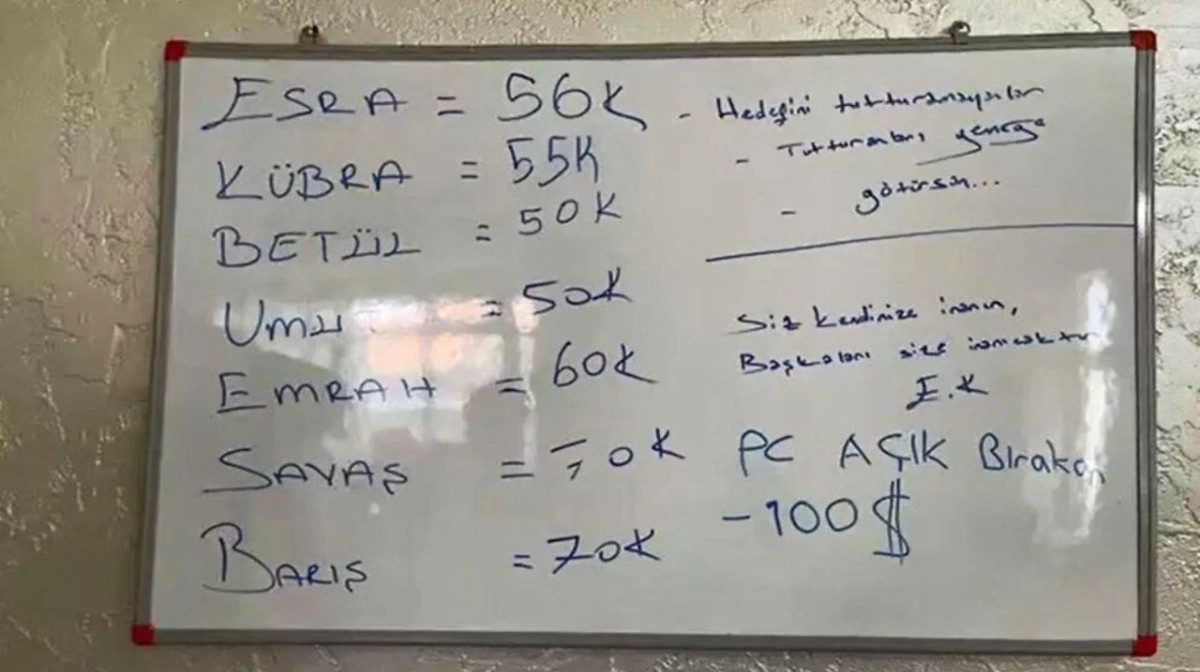 ESRA = 56K
KÜBRA = 55K
BETÜL = 50K
UMU = 50K
EMRAH = 60K
SAVAŞ = 70K
BARIŞ = 70K
- Hedefini tutturamayanlar
- Tutturanları yemeğe
- götürsün...
Siz kendinize inanın,
Başkaları size inanacaktır
E.K
PC AÇIK Bırakan
-100$